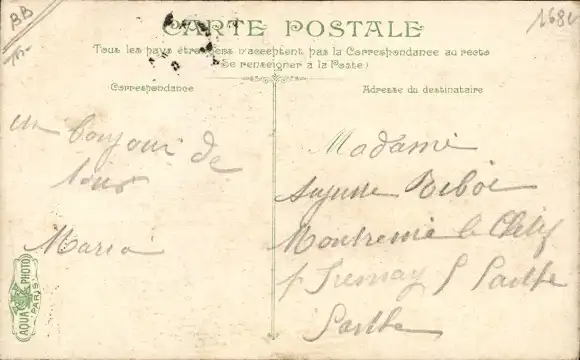 BB
168
CARTE POSTALE
Tous les pays étrangers n'acceptent pas la Correspondance au recto
(Se renseigner à la Poste)
Correspondance
Adresse du destinataire
un bonjour de
tous
Maria
Madame
Suzanne
Montreuil le Chétif
p Fresnay S Sarthe
Sarthe
AQUA PHOTO
PARIS